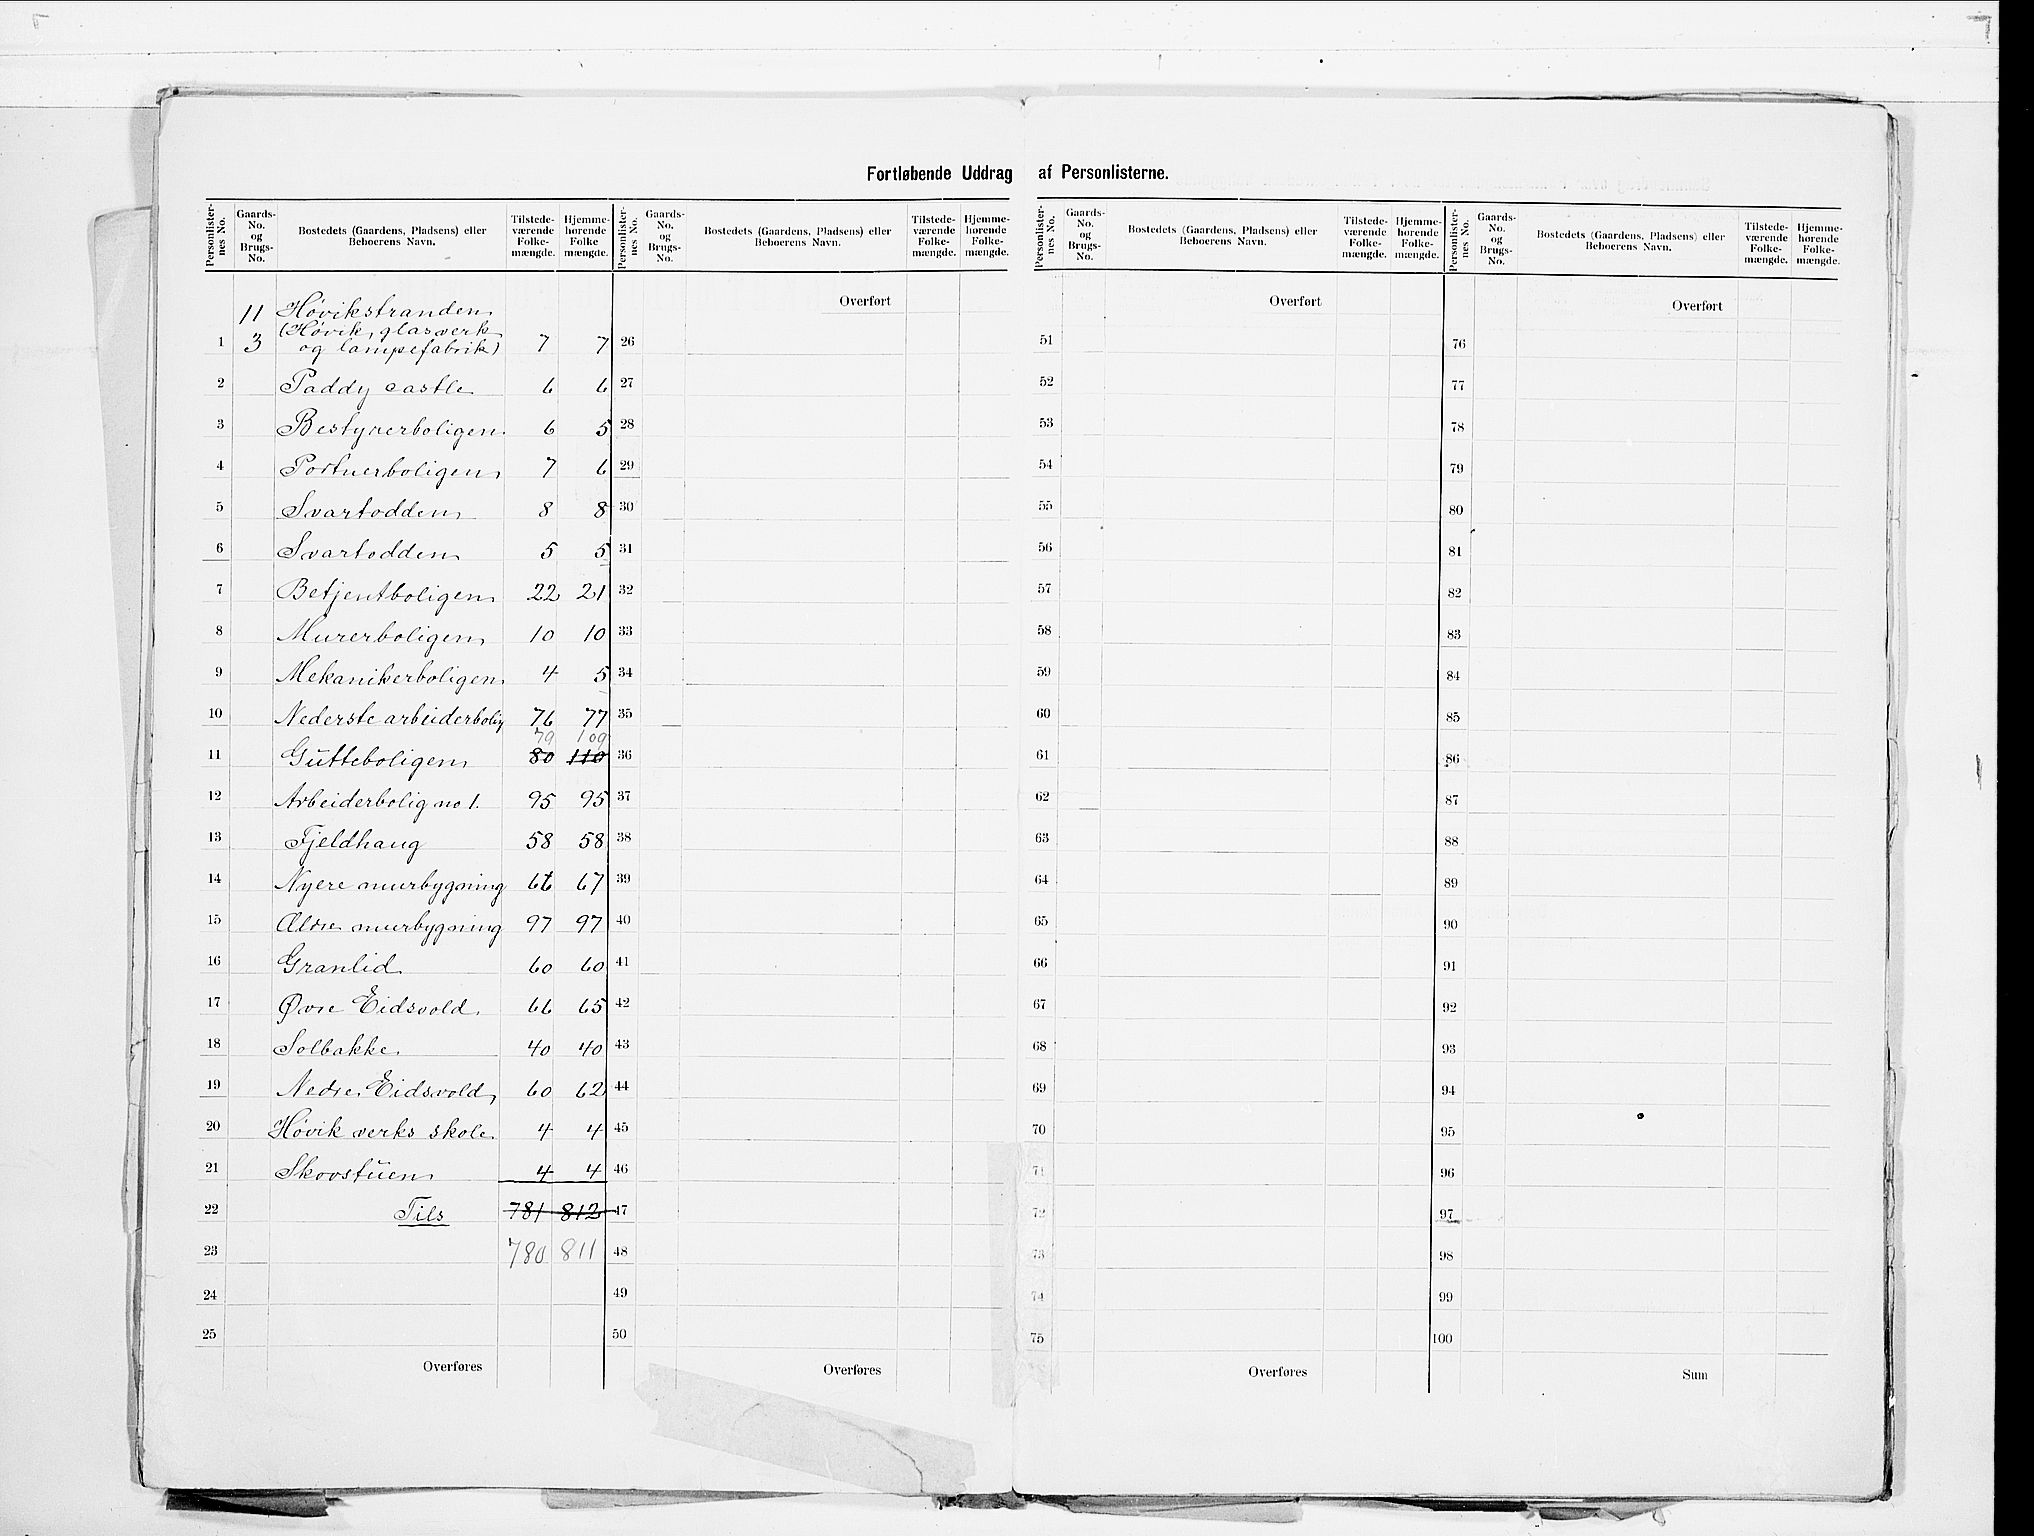 Fortløbende Uddrag af Personlisterne.
Personlister-nes No. | Gaards-No. og Brugs-No. | Bostedets (Gaardens, Pladsens) eller Beboerens Navn. | Tilstede-værende Folke-mængde. | Hjemme-hørende Folke mængde.
11 Høvikstranden
(Høvik glasverk
1 3 og lampefabrik) 7 7
2 Paddy castle 6 6
3 Bestyrerboligen 6 5
4 Portnerboligen 7 6
5 Svartodden 8 8
6 Svartodden 5 5
7 Betjentboligen 22 21
8 Murerboligen 10 10
9 Mekanikerboligen 4 5
10 Nederste arbeiderbolig 76 77
79 109
11 Gutteboligen 80 110
12 Arbeiderbolig no 1. 95 95
13 Fjeldhaug 58 58
14 Nyere murbygning 66 67
15 Ældre murbygning 97 97
16 Granlid 60 60
17 Øvre Eidsvold 66 65
18 Solbakke 40 40
19 Nedre Eidsvold 60 62
20 Høvik verks skole 4 4
21 Skovstuen 4 4
22 Tils 781 812
23 780 811
24
25
Overføres
Personlister-nes No. | Gaards-No. og Brugs-No. | Bostedets (Gaardens, Pladsens) eller Beboerens Navn. | Tilstede-værende Folke-mængde. | Hjemme-hørende Folke-mængde.
Overført
26
27
28
29
30
31
32
33
34
35
36
37
38
39
40
41
42
43
44
45
46
47
48
49
50
Overføres
Personlister-nes No. | Gaards-No. og Brugs-No. | Bostedets (Gaardens, Pladsens) eller Beboerens Navn. | Tilstede-værende Folke-mængde. | Hjemme-hørende Folke-mængde.
Overført
51
52
53
54
55
56
57
58
59
60
61
62
63
64
65
66
67
68
69
70
71
72
73
74
75
Overføres
Personlister-nes No. | Gaards-No. og Brugs-No. | Bostedets (Gaardens, Pladsens) eller Beboerens Navn. | Tilstede-værende Folke-mængde. | Hjemme-hørende Folke-mængde.
Overført
76
77
78
79
80
81
82
83
84
85
86
87
88
89
90
91
92
93
94
95
96
97
98
99
100
Sum